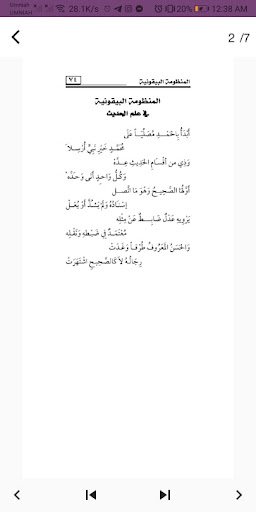 Ummah
UMNIAH
28.1K/s
20%
12:38 AM
2 /7
المنظومة البيقونية
٧٤
المنظومة البيقونية
في علم الحديث
أَبْدَأُ بِالحَمْـدِ مُصَلِّيَـاً عَلَى
مُحَمَّـدٍ خَيْرِ نَبِيٍّ أُرْسِلَا
وَذِي مِنَ أقْسَامِ الحَدِيثِ عِدَّهْ
وَكُـلُّ وَاحِدٍ أَتَى وَحَدَّهْ
أَوَّلُهَا الصَّحِيحُ وَهْوَ مَا اتَّصَلْ
إِسْنَادُهُ وَلَمْ يَشُـذَّ أَوْ يُعَـلّ
يَرْوِيهِ عَدْلٌ ضَابِـطٌ عَنْ مِثْلِهِ
مُعْتَمَدٌ فِي ضَبْطِهِ وَنَقْلِهِ
وَالحَسَنُ المَعْرُوفُ طُرْقاً وَغَدَتْ
رِجَالُـهُ لَا كَالصَّحِيحِ اشْتَهَرَتْ